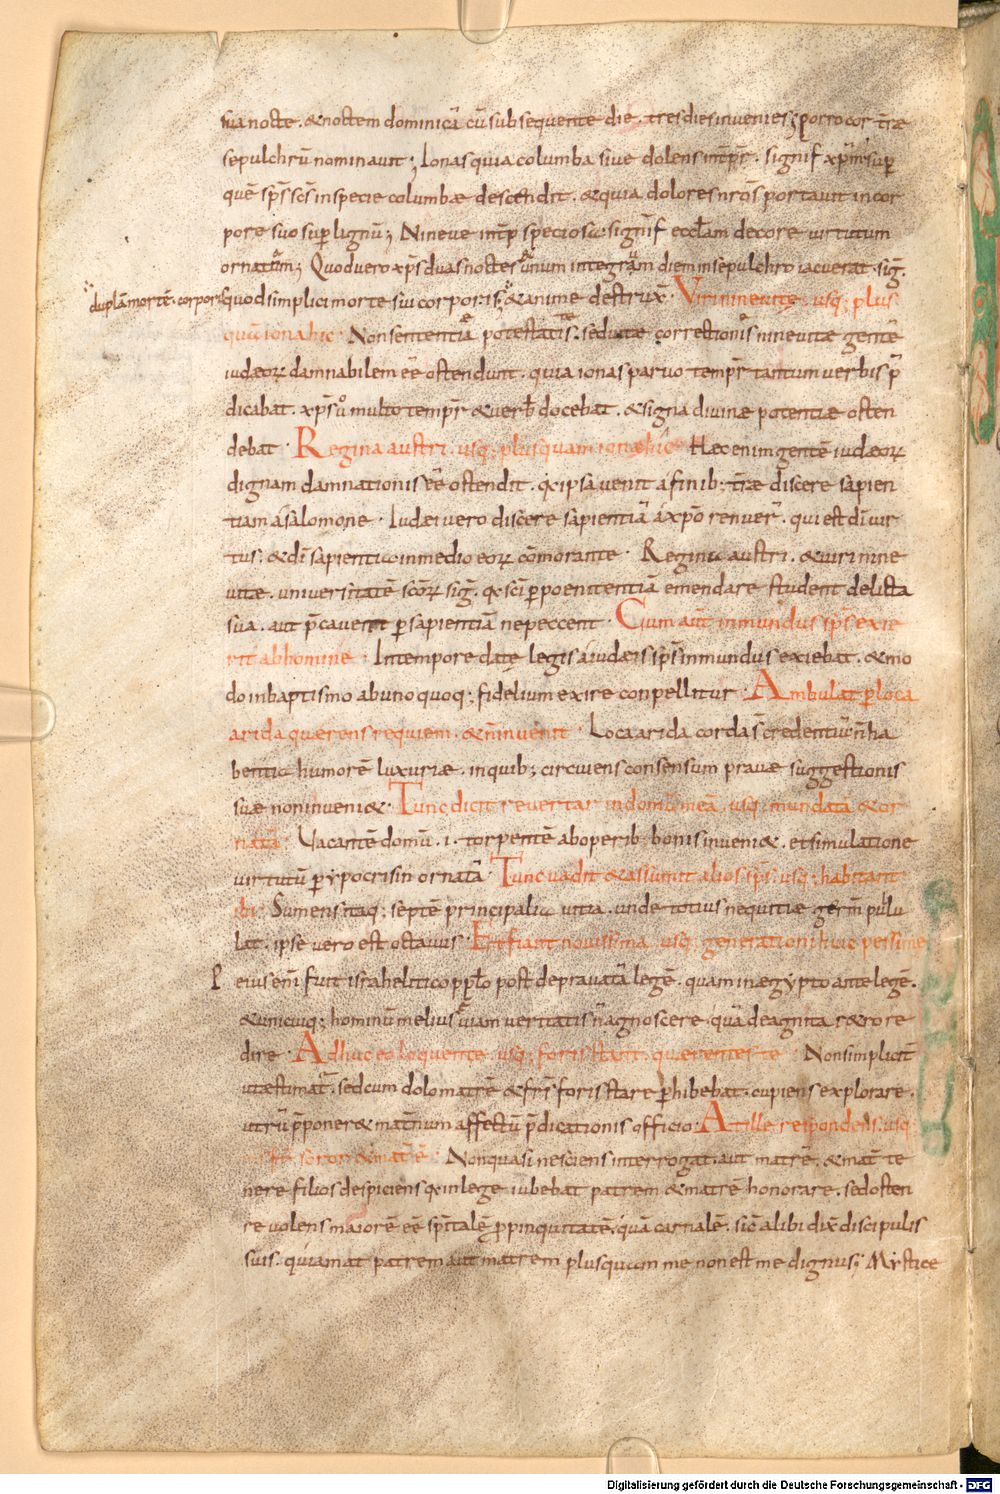 sua nocte. & noctem dominicā cū subsequente die. tres dies invenies; porro cor terræ
sepulchrū nominavit; Ionas quia columba sive dolens intēpr̄. signif̄ xp̄m sup̄
quē sp̄s sc̄s in specie columbæ descendit. & quia dolores nr̄os portavit in cor
pore suo sup̄ lignū; Nineve intēp̄ speciosa. signif̄ ecclām decore virtutum
ornatā; Quod vero xp̄s duas noctes & unum integrum diem in sepulchro iacuerat. sig̅.
duplā mortē. corporis
quod simplici morte sui corporis, & animę destrux̄. Viri ninevitę. usq; plus
quā iona hic. Non sententiā potestatis. sed vitæ correctionis ninevitæ gentē
iudæoꝝ damnabilem ēē ostendunt. quia ionas parvo tempr̄ tantum verbis p̄
dicabat. xp̄s v̊ multo tempr̄ & verb̄ docebat. & signa divinæ potentiæ osten
debat. Regina austri. usq; plus quam ionas hic. Hæc enim gentē iudæoꝝ
dignam damnationis ēē ostendit. q ipsa venit a finib; terræ discere sapien
tiam a salomone. Iudæi vero discere sapientiā a xp̄o renuer̄. qui est dī vir
tus. & dī sapientia in medio eoꝝ cōmorante. Regina austri. & viri nine
vitæ. universitatē sc̄oꝝ sig̅. q sc̄i p̄ poenitentiā emendare student delicta
sua. aut p̄cavent p̄ sapientiā ne peccent. Cum aūt inmundus sp̄s exie
rit ab homine. In tempore datę legis a iudæis sp̄s inmundus exiebat. & mo
do in baptismo ab unoquoq; fidelium exire conpellitur. Ambulat p̄ loca
arida quærens requiem. & n̄ invenit. Loca arida corda s̄ credentiū n̄ ha
bentia humorē luxuriæ. in quib; circuiens consensum pravæ suggestionis
suæ non inveni&. Tunc dicit revertar in domū meā. usq; mundatā & or
natā. Vacantē domū. i. torpentē ab operib; bonis inveni&. et simulatione
virtutū p̄ ypocrisin ornatā. Tunc vadit & assumit alios sp̄s. usq; habitant
ibi. Sumens itaq; septē principalia vitia. unde totius nequitiæ germ̄ pullu
lat. ipse vero est octavus. Et fiant novissima. usq; generationi huic pessimę
P eius enī fuit israhelitico pp̄lo post depravatā legē. quam in ægypto ante legē.
& unicuiq; hominū melius viam veritatis n̄ agnoscere. quā de agnita r&ro re
dire. Adhuc eo loquente. usq; foris stant. quærentes te. Non simplicit̄
sed cum dolo matrē & fr̄s foris stare p̄hibebat. cupiens explorare.
utrū p̄poner& mat̄num affectū p̄dicationis officio. At ille respondens. usq;
soror & mater ē. Non quasi nesciens interrogat. aut matrē. & mat̄ te
nere filios despiciens q in lege iubebat patrem & matrē honorare. sed osten
re volens maiorē ēē sp̄italē p̄pinquitatē. quā carnalē. sic̄ alibi dix̄ discipulis
suis. qui amat patrem aut matrem plus quam me non est me dignus; Mystice
Digitalisierung gefördert durch die Deutsche Forschungsgemeinschaft - DFG